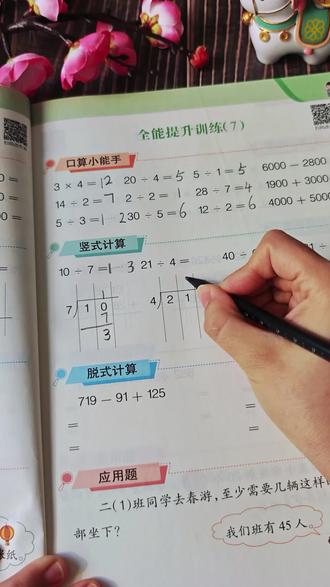 全能提升训练(7)
口算小能手
3 × 4 = 12 20 ÷ 4 = 5 5 ÷ 1 = 5 6000 − 2800
14 ÷ 2 = 7 2 ÷ 2 = 1 28 ÷ 7 = 4 1900 + 3000
5 ÷ 3 = 1…2 30 ÷ 5 = 6 12 ÷ 2 = 6 4000 + 5000
竖式计算
10 ÷ 7 = 1…3 21 ÷ 4 = 40 ÷
1
7 1 0 4 2 1
7
3
脱式计算
719 − 91 + 125
=
=
应用题
二(1)班同学去春游,至少需要几辆这样
部坐下?
我们班有 45 人。
纸。